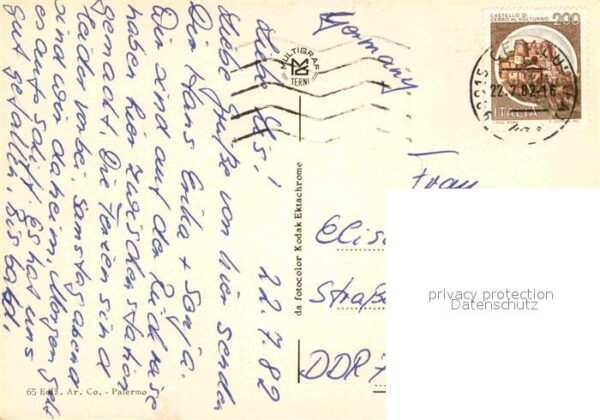 Liebe Els!
22.7.82
Liebe Grüße von hier senden
Dir Hans, Erika + Sonja.
Wir sind auf der Rückreise
haben hier Zwischenstation
gemacht. Die Ferien sind
leider vorbei. Samstag abend
sind wir daheim. Morgen geht
es aufs Schiff. Es hat uns
gut gefallen, bis bald.
Germany
Frau
Elis
Straße
DDR 7
MULTIGRAF
TERNI
da fotocolor Kodak Ektachrome
65 Ediz. Ar. Co. - Palermo
CASTELLO DI
CERRO AL VOLTURNO
200
ITALIA
90015
22.7.82-16
privacy protection
Datenschutz